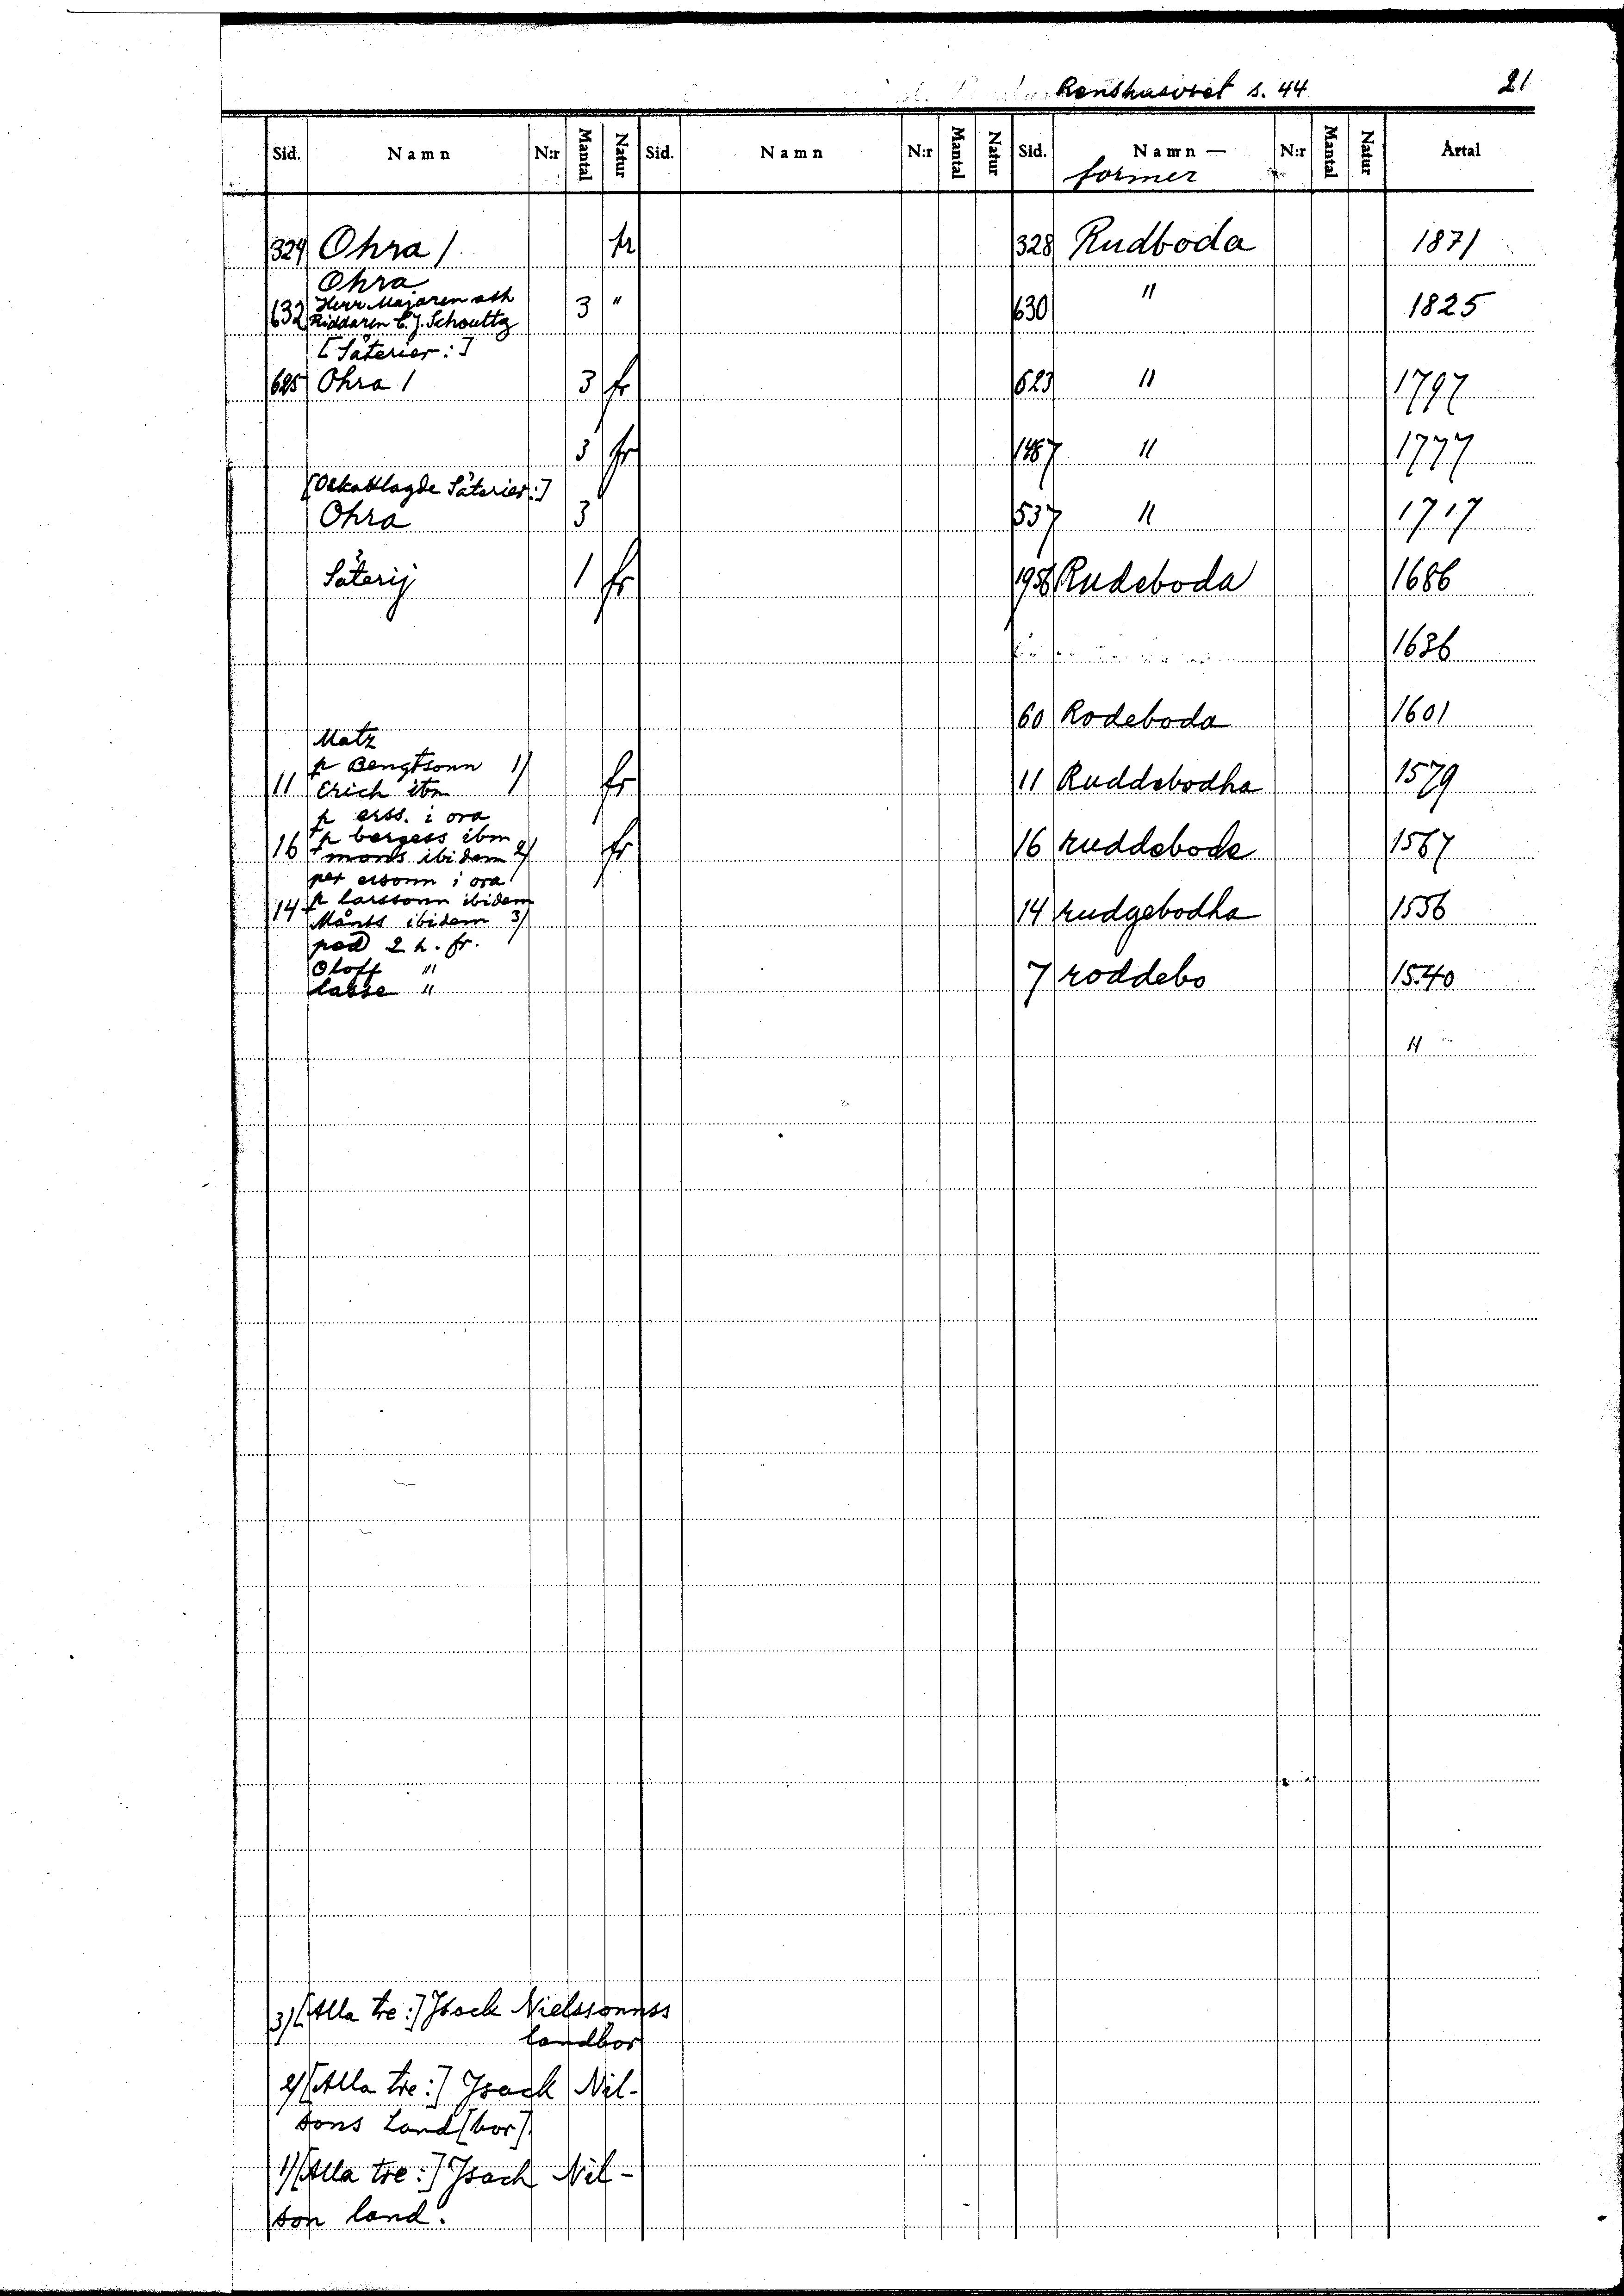 Renshuset s. 44 21
Sid. Namn N:r Mantal Natur Sid. Namn N:r Mantal Natur Sid. Namn — N:r Mantal Natur Årtal
former
324 Ohra 1 fr 328 Rudboda 1871
Ohra
632 Herr Majoren och 3 " 630 " 1825
Riddaren C. J. Schoultz
[Säterier:]
625 Ohra 1 3 fr 623 " 1797
3 fr 1487 " 1777
[Oskattlagde Säterier:]
Ohra 3 537 " 1717
Säterij 1 fr 1958 Rudeboda 1686
1636
60 Rodeboda 1601
Matz
p Bengtsonn 1)
11 Erich ibm fr 11 Ruddebodha 1579
p erss. i ora
p bergess ibm
16 mons ibidem 2) fr 16 ruddebode 1567
per ersonn i ora
p larssonn ibidem
14 Månss ibidem 3) 14 rudgebodha 1556
ped 2 h. fr.
Oloff "
lasse " 7 roddebo 1540
"
3) [Alla tre:] Jsack Nielssonnss
landbor
2) [Alla tre:] Jsack Nil-
sons Land[bor].
1) [Alla tre:] Jsach Nil-
son land.